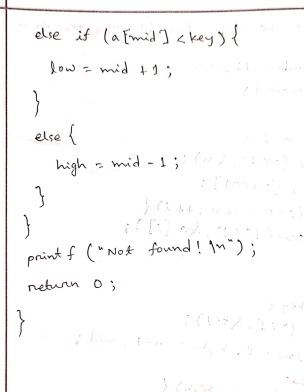 else if (a[mid] < key) {
low = mid + 1;
}
else {
high = mid - 1;
}
}
printf ("Not found! \n");
return 0;
}